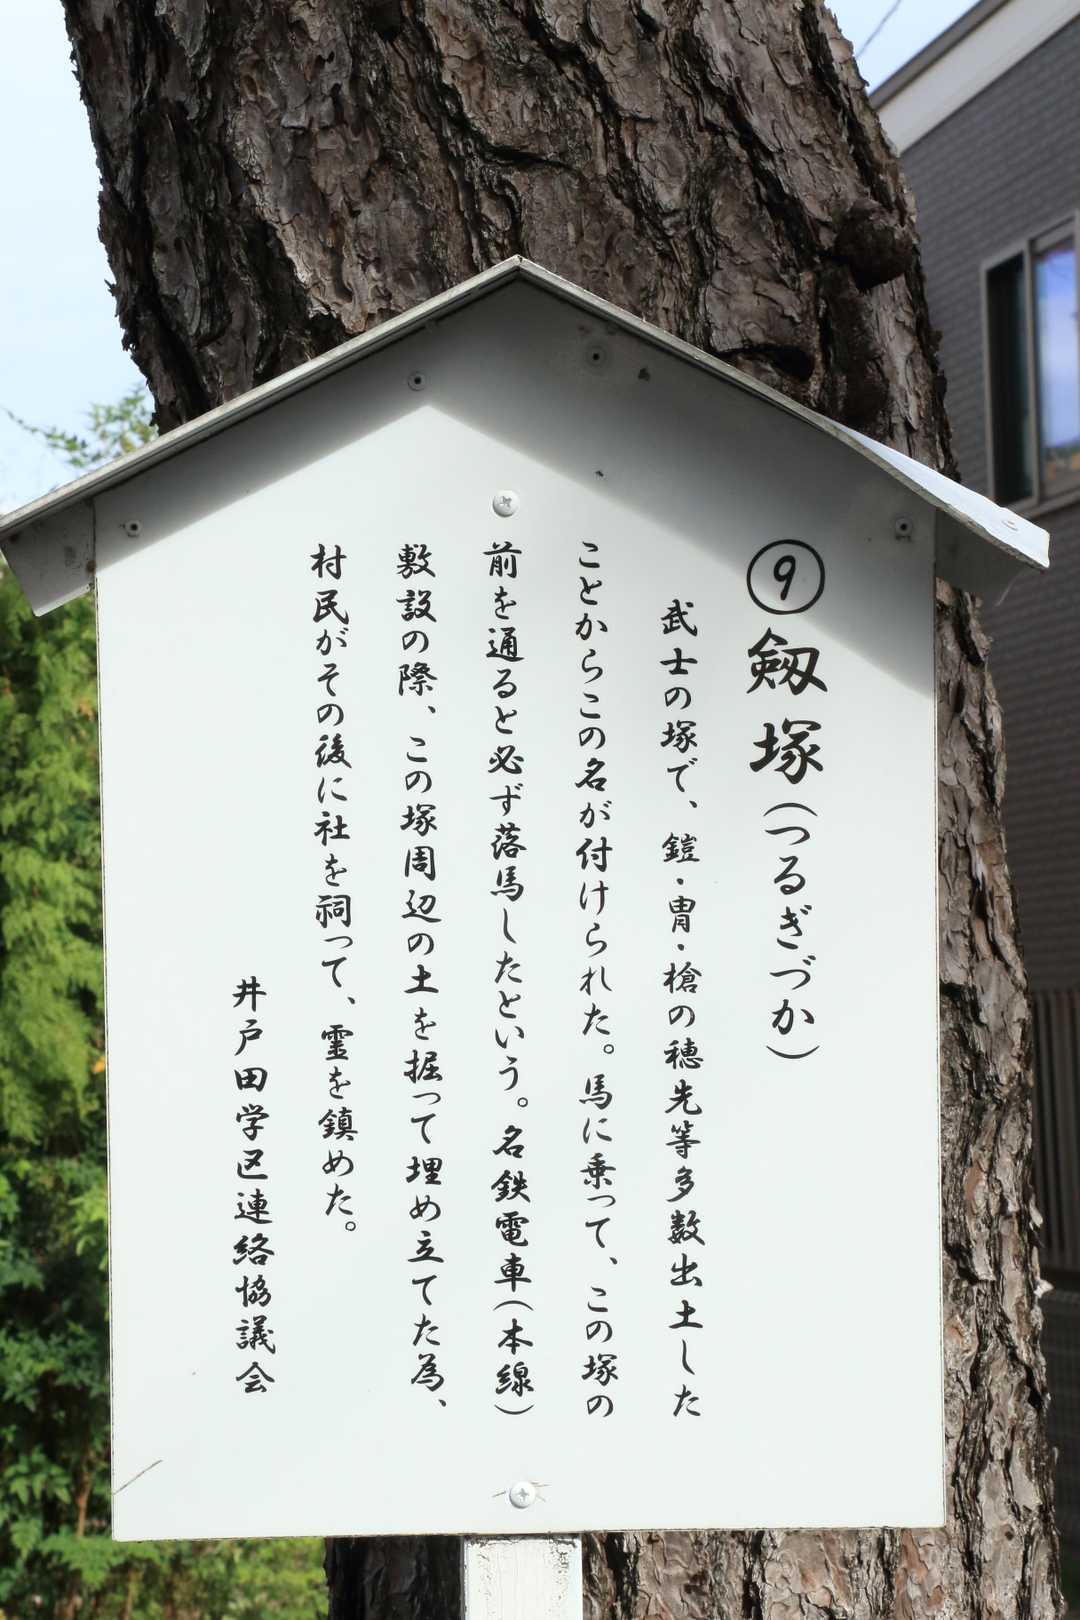 ⑨剱塚(つるぎづか)
武士の塚で、鎧・冑・槍の穂先等多数出土した
ことからこの名が付けられた。馬に乗って、この塚の
前を通ると必ず落馬したという。名鉄電車(本線)
敷設の際、この塚周辺の土を掘って埋め立てた為、
村民がその後に社を祠って、霊を鎮めた。
井戸田学区連絡協議会